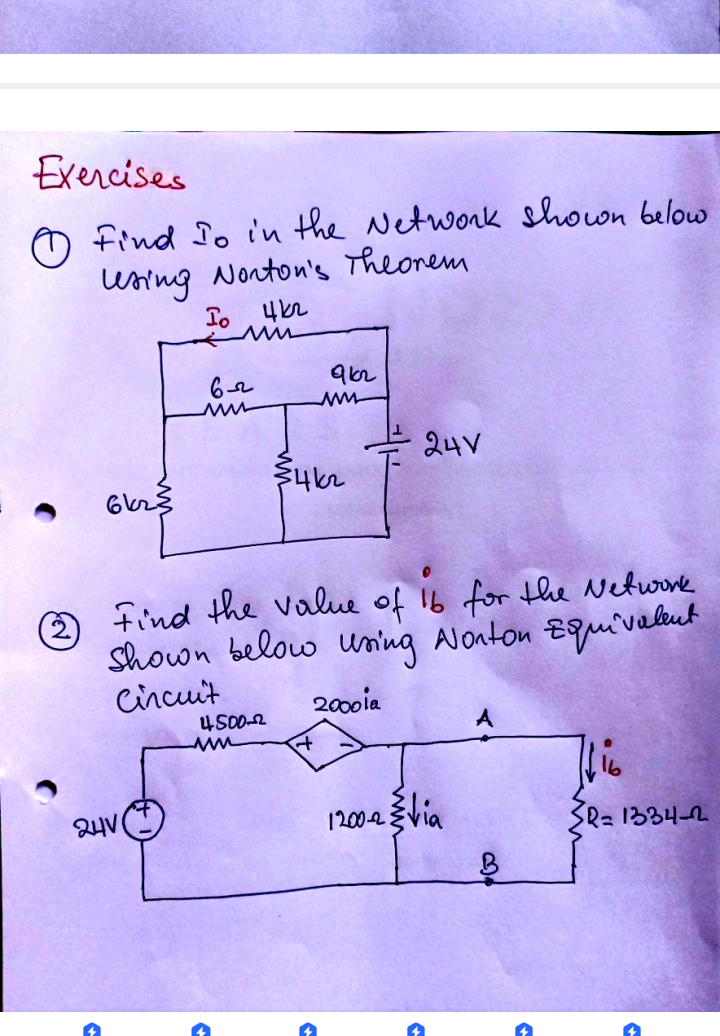 Exercises
① Find Io in the Network shown below
using Norton's Theorem
Io 4kΩ
6Ω 9kΩ
+
24V
-
4kΩ
6kΩ
② Find the value of ib for the Network
shown below using Norton Equivalent
Circuit
2000ia
4500Ω
A
+ -
ib
24V
+
-
1200Ω ia
R = 1334Ω
B